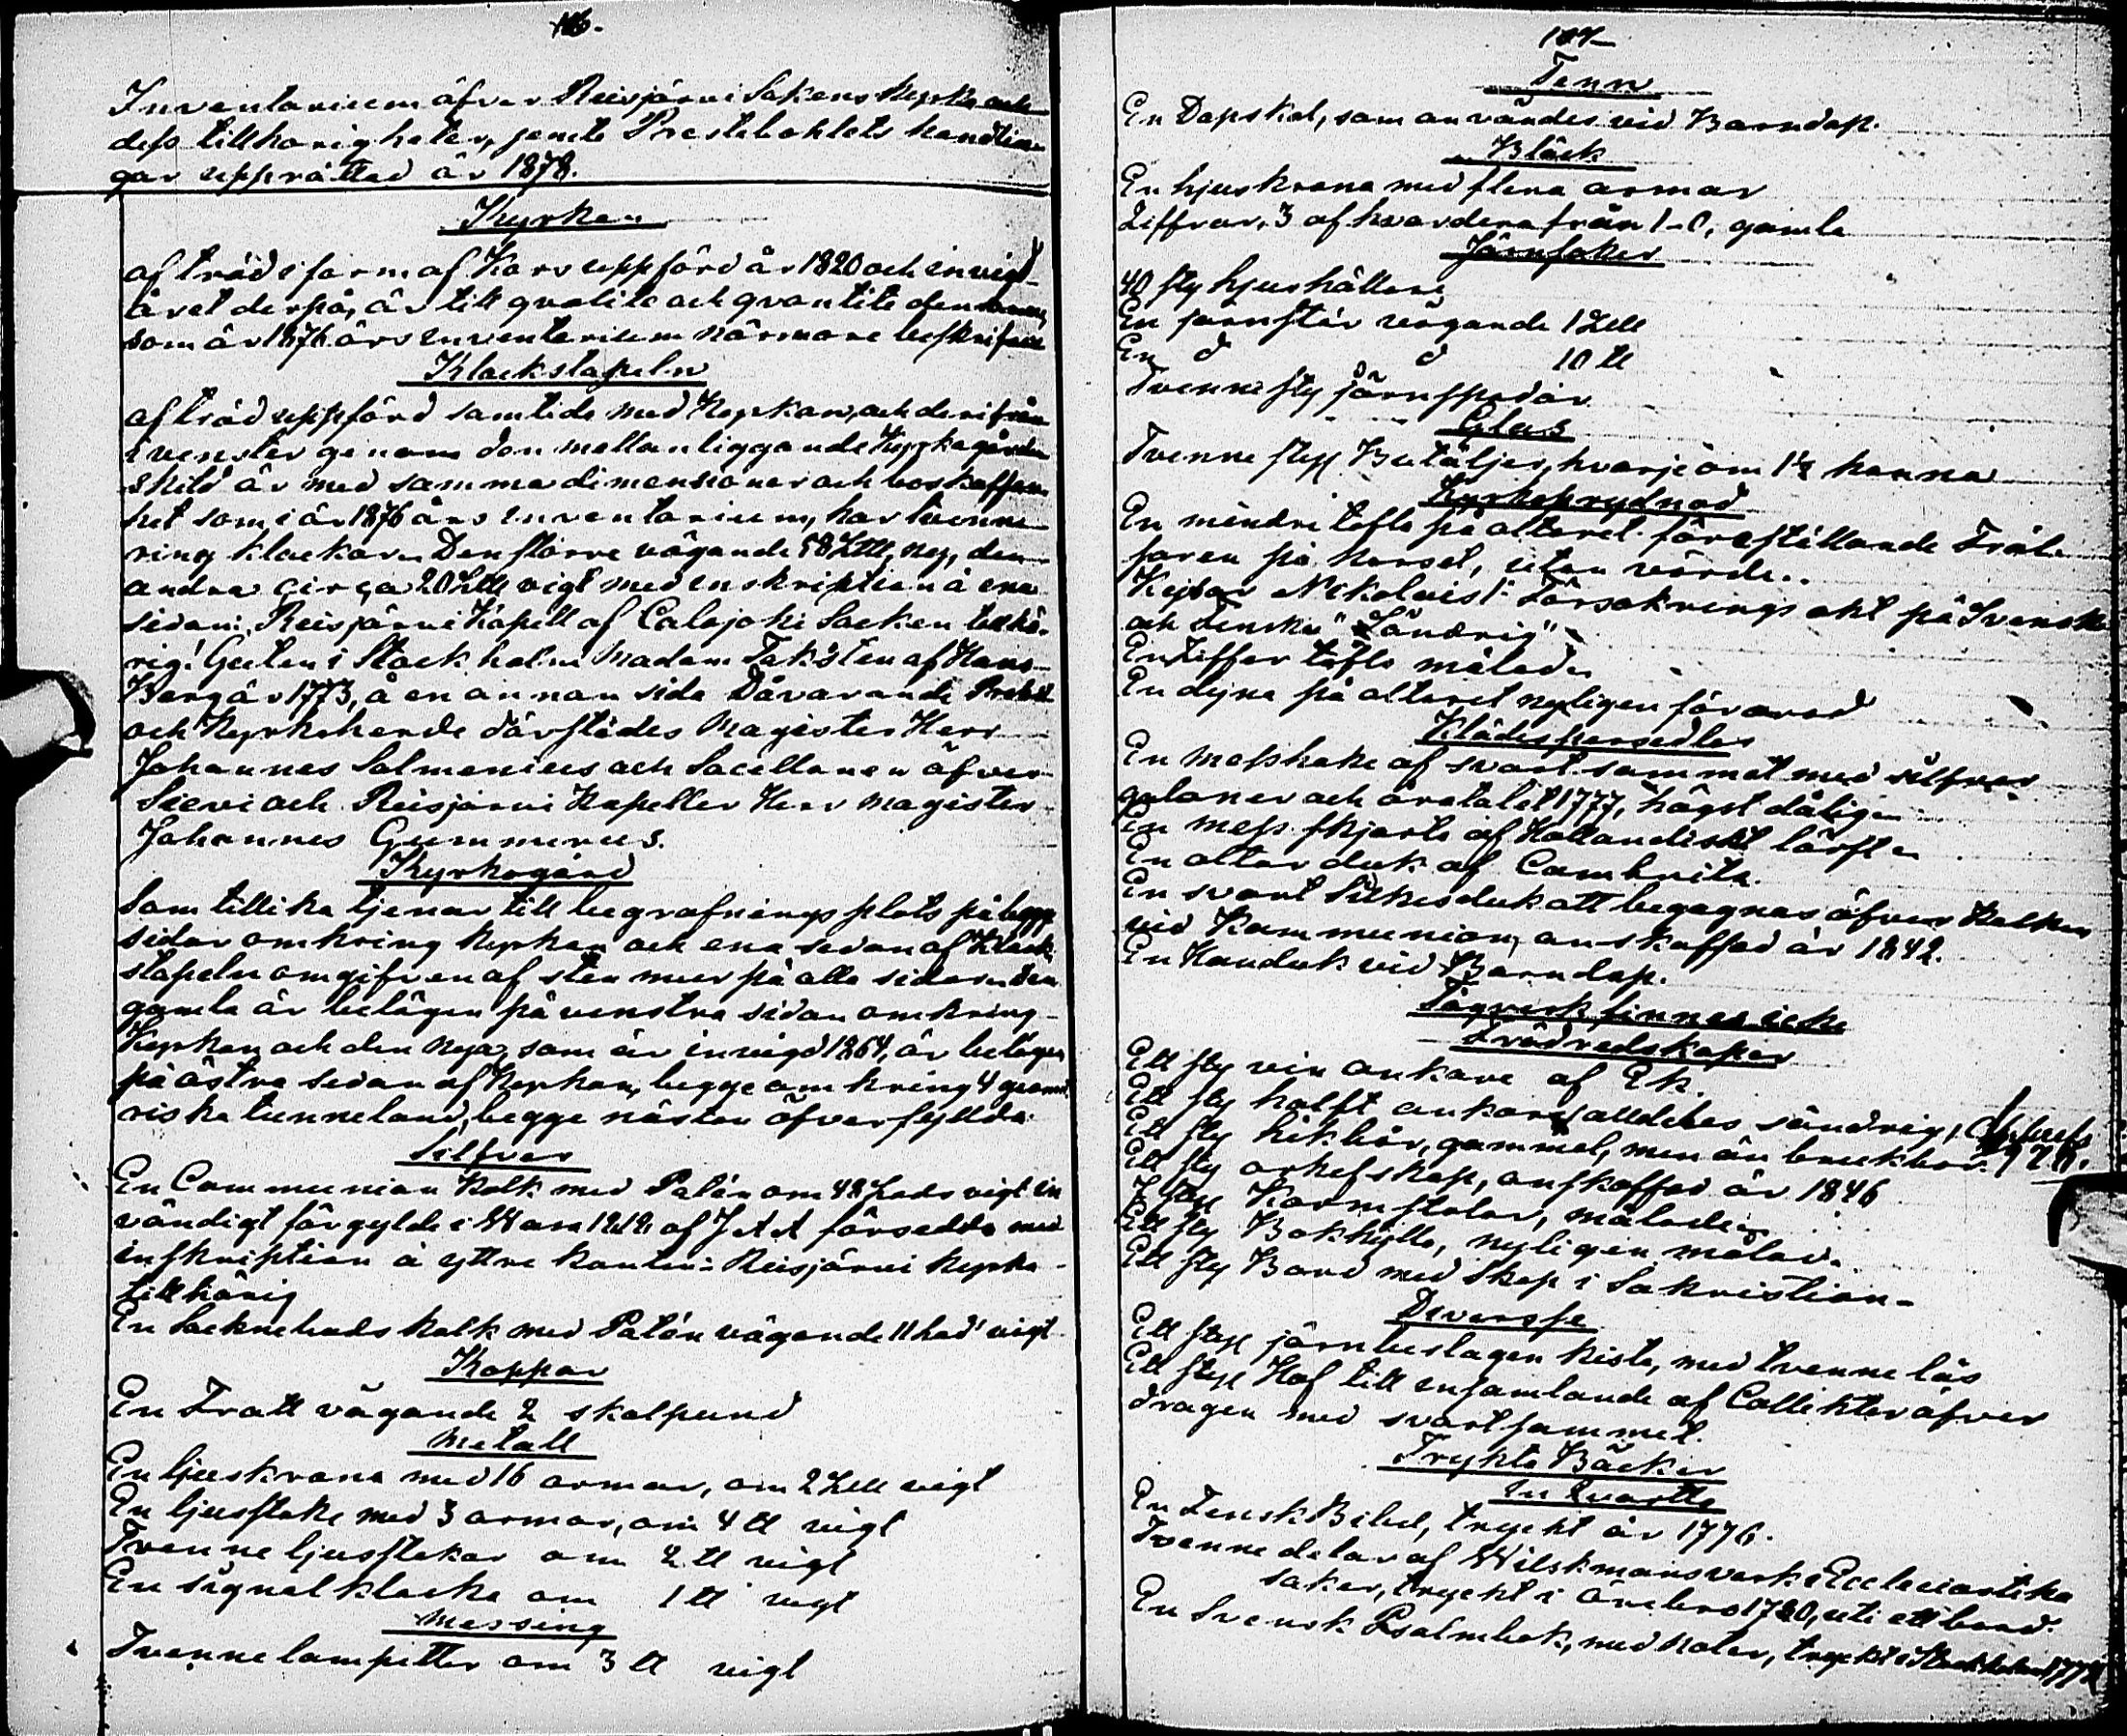 116.
Inventarium öfver Reisjärvi Sokens Kyrka och
dess tillhörigheter, jemte Prestebohlets handlin-
gar upprättad år 1878.
Kyrkan
af träd i form af Kors uppförd år 1820 och invigd
året derpå, är till qvalite och qvantite densamma,
som år 1876 års inventarium närmare beskrifver
Klockstapeln
af träd uppförd samtide med Kyrkan, och derifrån
i venster genom den mellanliggande Kyrkogården
skild är med samma dimensioner och beskaffen-
het som i år 1876 års inventarium, har tvenne
ring klockor. Den större vägande 58 L℔, ny, den
andra circa 20 L℔ vigt med inskription å ena
sidan: Reisjärvi Kapell af Calajoki Socken tillhö-
rig! Guten i Stockholm Madam
Berg år 1773, å en annan sida Dåvarande Probst
och Kyrkoherde därstädes Magister Herr
Johannes Salmenius och Sacellanen öfver
Sievi och Reisjärvi Kapeller Herr Magister
Johannes Gummerus.
Kyrkogård
Som tillika tjenar till begrafnings plats på begge
sidor omkring Kyrkan och ena sidan af Klock-
stapeln omgifven af sten mur på alla sidor. Den
gamla är belägen på venstra sidan omkring
Kyrkan och den nya, som är invigd 1864, är belägen
på östra sidan af Kyrkan, begge omkring 4 geomet-
riska tunneland, begge nästan öfverfyllda.
Silfver
En Communion Kalk med Patén om 48 Lods vigt in
vändigt förgylde i Wasa 1212 af J A A försedda med
inskription å yttre kanten: Reisjärvi Kyrka
tillhörig
En Socknebuds kalk med Patén vägande 11 lod vigt
Koppar
En Tratt vägande 2 skålpund
Metall
En ljuskrona med 16 armar, om 2 L℔ vigt
En ljusstake med 3 armar, om 4 ℔ vigt
Tvenne ljusstakar om 2 ℔ vigt
En signal klocka om 1 ℔ vigt
Messing
Tvenne lampetter om 3 ℔ vigt
117
Tenn
En Dopskål, som användes vid Barndop.
Bläck
En ljuskrona med flera armar
Ziffror, 3 af hvardera från 1-0, gamla
Järnsaker
40 sty ljushållare
En jernstör vägande 1 L℔
En d d 10 ℔
Tvenne sty järnspadar
Glas
Tvenne styc Buteljer, hvarje om 1½ kanna
Kyrkoprydnad
En mindre tafla på altaret föreställande Fräl-
saren på korset, utan värde.
Kejsar Nikolai I: Försäkrings akt på Svenska
och Finska "Söndrig"
En Ziffer tafla målad
En dyna på altaret nyligen förärad
Klädespersedlar
En Messhake af svart sammet med silfver
galoner och årstalet 1777, högst dålig
En mess skjorta af Hollandiskt lärft
En altar duk af Cambrits.
En svart Silkesduk att begagnas öfver Kalken
vid Kommunion, anskaffad år 1842.
En Handuk vid Barndop.
Tågverk finnes icke
Trädredskaper
Ett sty vin ankare af Ek.
Ett sty halft ankare alldeles söndrig,
Ett sty likbår, gammal, men än brukbar.
Ett sty arkifskåp, anskaffad år 1846
styc Karmstolar, målade
Ett sty Bokhylla, nyligen målad.
Ett sty Bord med skåp i Sakristian.
Diverse
Ett styc järnbeslagen kista, med tvenne lås
Ett styc Håf till insamlande af Collekter öfver
dragen med svart sammet.
Trykta Böcker
In Quarto
En Finsk Bibel, tryckt år 1776.
Tvenne delar af Wilskmans verk i Ecclesiastika
saker, tryckt i Örebro 1780, uti ett band.
En Svensk Psalmbok, med Noter, tryckt i Stockholm 177